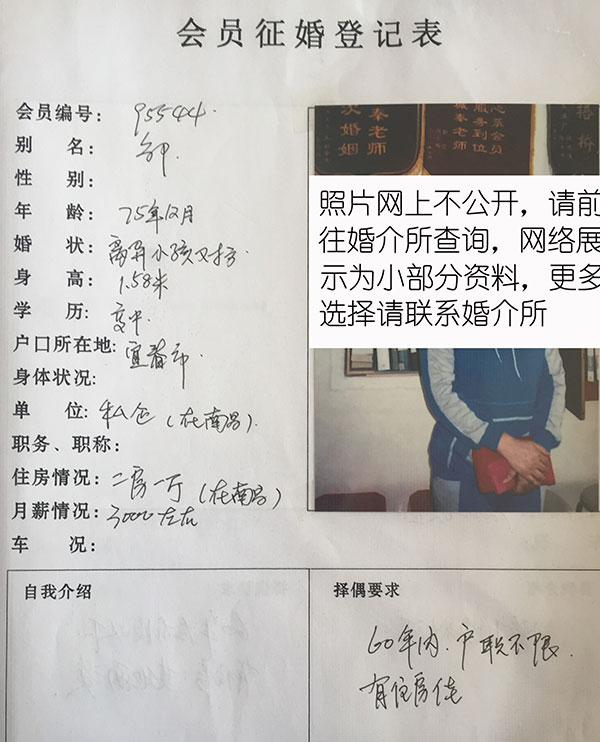 会员征婚登记表
会员编号: 95544
别 名: 
性 别:
年 龄: 75年12月
婚 状: 离异小孩又对方
身 高: 1.58米
学 历: 高中
户口所在地: 宜春市
身体状况:
单 位: 私企(在南昌)
职务、职称:
住房情况: 二房一厅(在南昌)
月薪情况: 3000左右
车 况:
奉老师
次婚姻
心系会员
服务到位
奉老师
搭桥
照片网上不公开,请前
往婚介所查询,网络展
示为小部分资料,更多
选择请联系婚介所
自我介绍
择偶要求
60年内.户职不限.
有住房佳